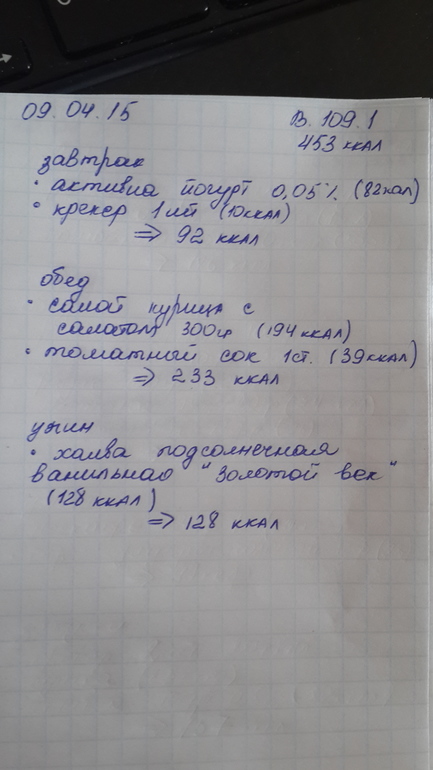 09.04.15
В. 109.1
453 ккал
завтрак
• активиа йогурт 0,05% (82кал)
• крекер 1 шт (10ккал)
=> 92 ккал
обед
• салат курица с
салатом 300гр (194ккал)
• томатный сок 1ст. (39ккал)
=> 233 ккал
ужин
• халва подсолнечная
ванильная "Золотой век"
(128 ккал)
=> 128 ккал